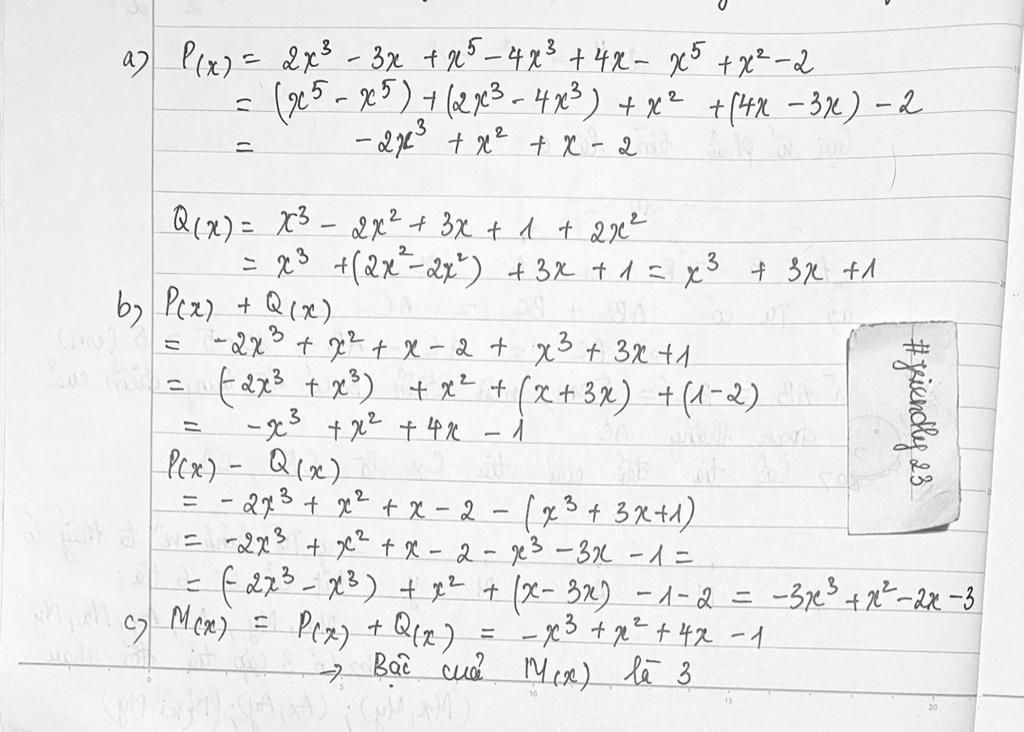 a) P(x) = 2x³ - 3x + x⁵ - 4x³ + 4x - x⁵ + x² - 2
= (x⁵ - x⁵) + (2x³ - 4x³) + x² + (4x - 3x) - 2
= -2x³ + x² + x - 2
Q(x) = x³ - 2x² + 3x + 1 + 2x²
= x³ + (2x² - 2x²) + 3x + 1 = x³ + 3x + 1
b) P(x) + Q(x)
= -2x³ + x² + x - 2 + x³ + 3x + 1
= (-2x³ + x³) + x² + (x + 3x) + (1 - 2)
= -x³ + x² + 4x - 1
P(x) - Q(x)
= -2x³ + x² + x - 2 - (x³ + 3x + 1)
= -2x³ + x² + x - 2 - x³ - 3x - 1 =
= (-2x³ - x³) + x² + (x - 3x) - 1 - 2 = -3x³ + x² - 2x - 3
c) M(x) = P(x) + Q(x) = -x³ + x² + 4x - 1
→ Bậc của M(x) là 3
#friendly23